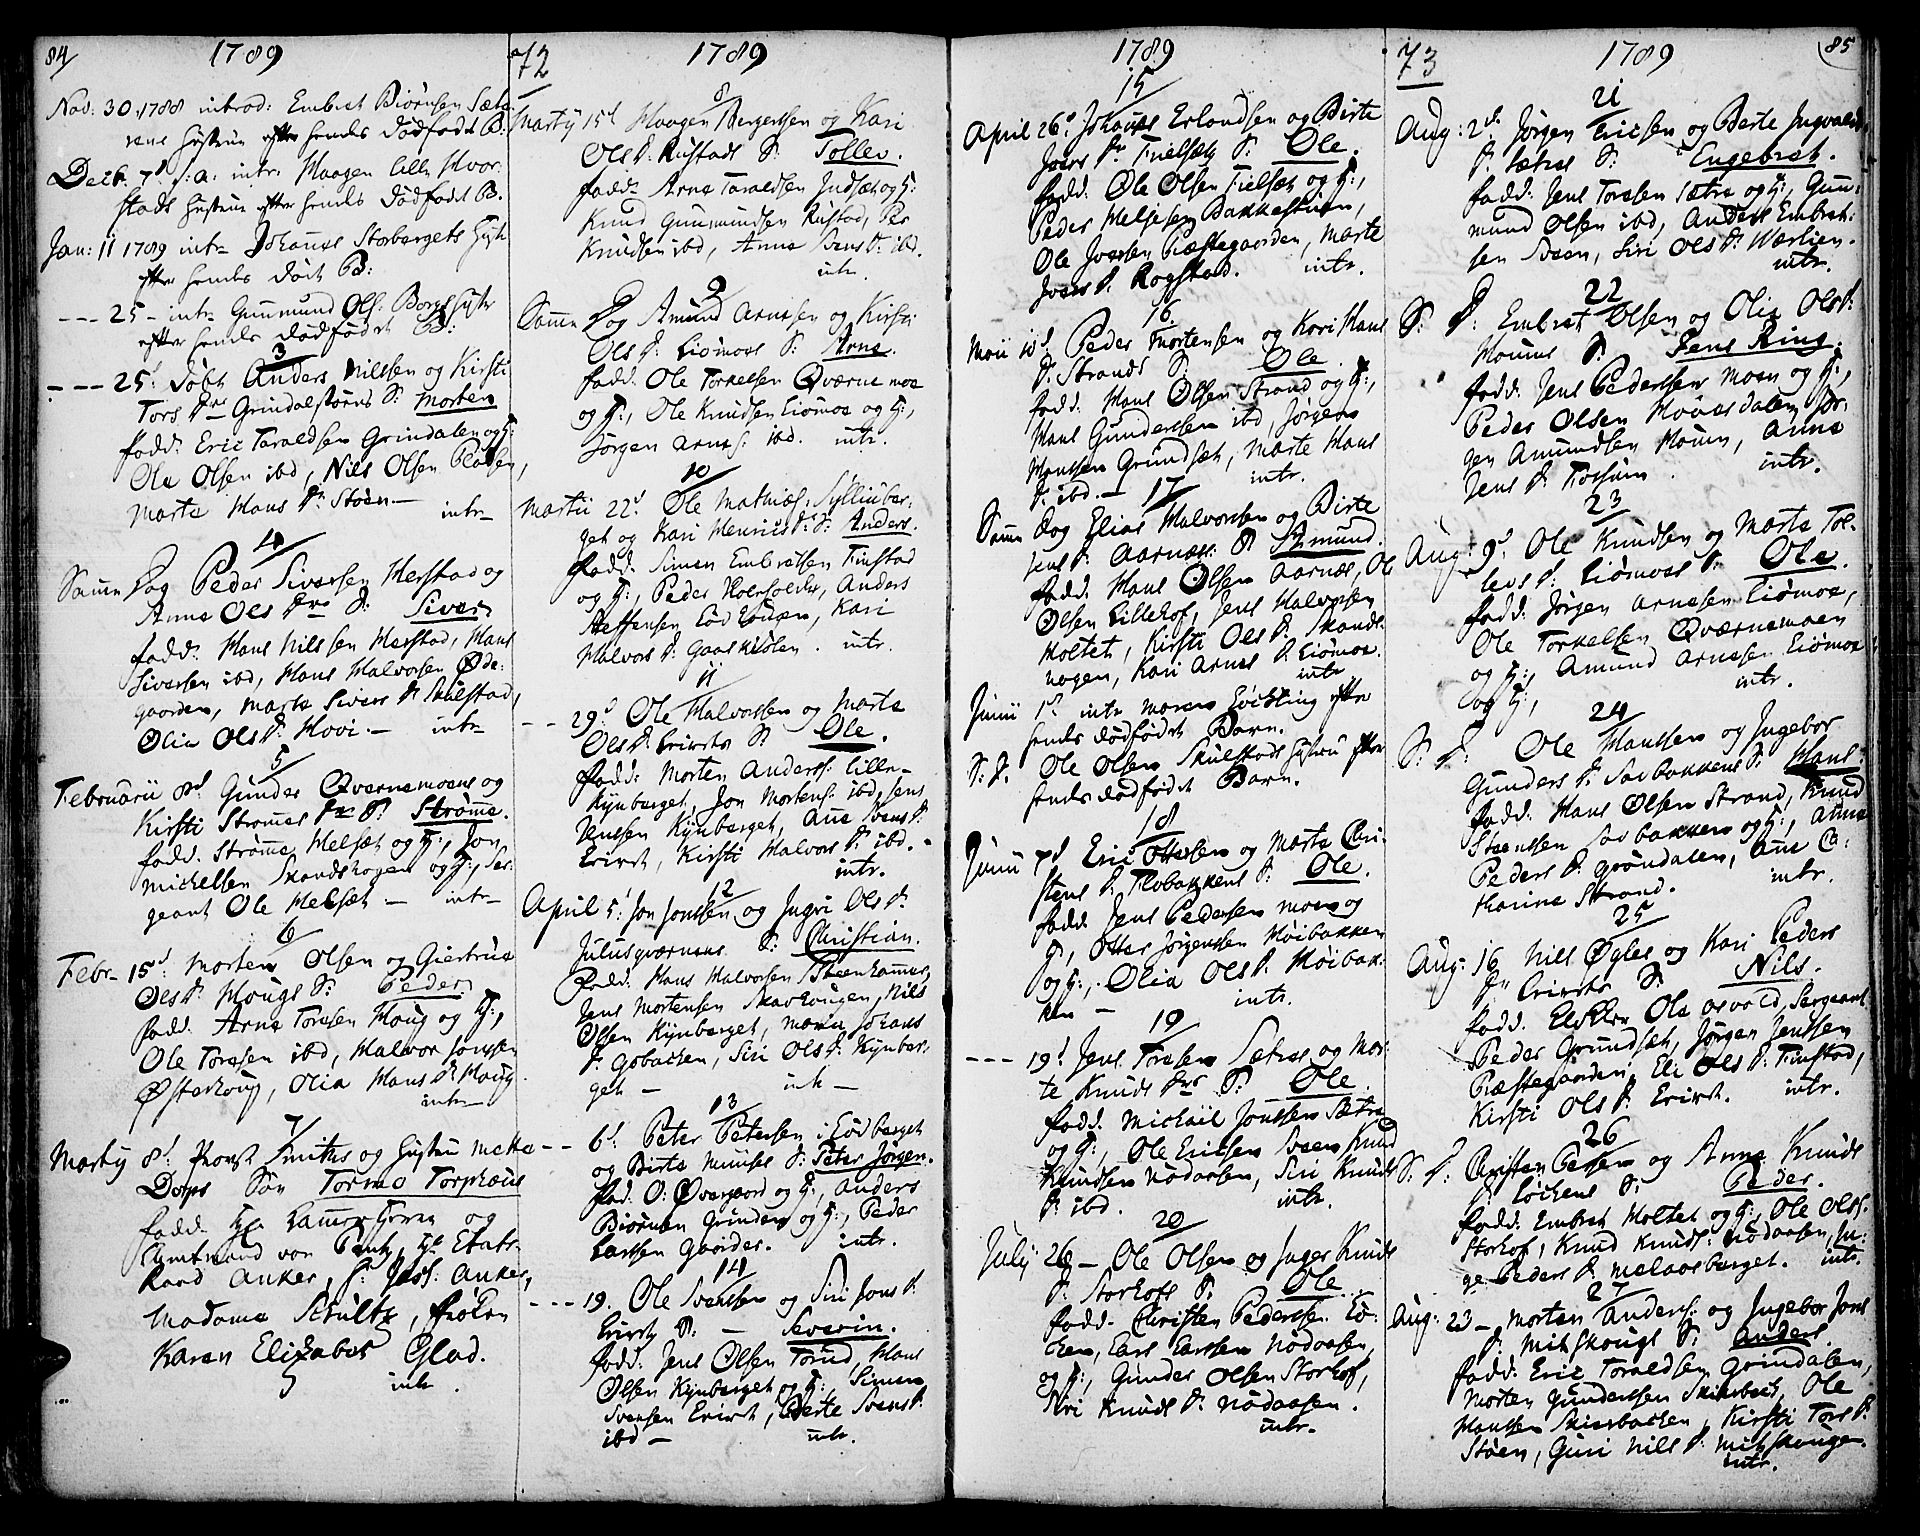 84
1789
Nov: 30. 1788 introd: Embret Biørnsen Sætes
rens Hustru efter hendes dødfødt B.
Decb. 7d s. a. intr. Haagen Lille Hvor-
stads Hustru efter hendes dødfødt B.
Jan: 11 1789 intr- Johannes Storbergets Hust
efter hendes dødt B:
--- 25 - intr Gunmund Ols: Borgs Hustr
efter hendes dødfødt B:
3
--- 25d døbt Anders Nilssen og Kirsti
Tors Dr Grindalstøens S: Morten
fadd: Eric Taraldsen Grindalen og H:
Ola Olsen ibd, Nils Olsen Pladsen,
Marte Hans Dr Støen - intr-
4
Samme Dag Peder Siversen Herstad og
Anne Ols Drs S: Siver
fadd: Hans Nilssen Herstad, Hans
Siversen ibd, Hans Halvorsen Øde-
gaarden, Marte Sivers D. Skulstad,
Olia Ols D. Hovi. - intr-
5
Februarii 8d Gunder Qvernemoens og
Kirsti Strømes Dr S. Strømme.
fadd. Strømme Melsæt og H:, Jon
Michelsen Skandshogen og H:, Ser-
geant Ole Melsæt - intr-
6
Febr- 15d Morten Olsen og Giertrue
Ols D. Hougs S: Peder
fadd: Arne Toresen Houg og H:,
Ole Toresen ibd, Halvor Jonssen
Østerhoug, Olia Hans D. Houg
intr-
7
Martij 8d Provst Smiths og Hustru Mette
Dorps Søn Tormo Torphæus
fadd. Hr Cammerherre og
Amtmand von Pentz, Hr Etats-
Raad Anker, Hr Jess: Anker,
Madame Schultz, Frøken
Karen Elizabet Glad.
intr.
72
1789
8
Martij 15d Haagen Bergersen og Kari
Ols D. Rustads S. Tollev.
fadd: Arne Taraldsen Jndsæt og H:
Knud Gunmundsen Rustad, Per
Knudsen ibd, Anne Svens D: ibd.
intr.
9
Samme Dag Amund Arnesen og Kirsti
Ols D. Liømoes S: Arne.
fadd. Ole Torkelsen Qværnemoe
og H:, Ole Knudsen Liømoe og H:,
Jørgen Arnes: ibd. intr.
10
Martii 22d Ole Mathiæs: Sylliuber-
get og Kari Henrics D. S: Anders.
fadd. Simen Embretsen Finstad
og H:, Peder Holersveen, Anders
Steffensen Lødhougen, Kari
Halvors D. Gaaskiølen. intr.
11
-- 29d Ole Halvorsen og Marte
Ols D. Erirets S. Ole.
fadd: Morten Anderss: Lille-
Kynberget, Jon Mortens: ibd, Jens
Jenssen Kynberget, Ane Svens D.
Eriret, Kirsti Halvors D. ibd. -
intr.
12
April 5d Jon Jonssen og Jngri Ols D.
Julusqværnens S: Christian.
Fadd. Hans Halvorsen Steenhammer,
Jens Mortensen Skavhougen, Nils
Olsen Kynberget, Maria Johans
D. Gobacken, Siri Ols D. Kynber-
get - intr -
13
-- 6d Peter Petersen i Lødberget
og Birte Muuses S: Peter Jørgen.
fad. O: Overgaard og H:, Anders
Biørnsen Grinder og H:, Peder
Larssen Gaarder. intr.
14
--- 19. Ole Svenssen og Siri Jons D
Erirets S: - Severin.
fadd. Jens Olsen Torud, Hans
Olsen Kynberget og H:, Simen
Svensen Eriret, Berte Svens D.
ibd - intr.
1789
15
April 26d Johannes Erlandsen og Birte
Joers Dr Fielsæts S: Ole.
fadd. Ole Olsen Fielsæt og H:,
Peder Helgesen Bakkestuen,
Ole Joersen Præstegaarden, Marte
Joers D. Rogstad. intr.
16
Maii 10d Peder Mortensen og Kari Hans
D. Strands S. Ole
fadd. Hans Olsen Strand og H:,
Hans Gunderssen ibd, Jørgen
Hanssen Grundsæt, Marte Hans
D. ibd. - intr.
17
Samme dag Elias Halvorsen og Birte
Jens D. Aarnæs: S. Amund.
fadd. Hans Olsen Aarnæs, Ole
Olsen Lillehof, Jens Halvorsen
Holtet, Kirsti Ols D. Skands-
hogen, Kari Arnes D. Liømoe.
intr
Junii 1d intr Maren Løvkling efter
hendes dødfødt Barn.
S: D. Ole Olsen Skulstads Hustru efter
hendes dødfødt Barn.
18
Junii 7d Eric Ottersen og Marte Chri-
stens D. Flobakkens S: Ole.
fadd. Jens Pedersen Moen og
H:, Otter Jørgenssen Høibakken
og H:, Olia Ols D. Høibak-
ken - intr.
19
--- 19d Jens Toresen Sætres og Mar-
te Knuds Drs S. Ole.
fadd. Michail Jonssen Sætre
og H:, Ole Ericsen Sveen, Knud
Knudsen Nødaasen, Siri Knuds
D. ibd. intr.
20
Julij 26 - Ole Olsen og Inger Knuds
D. Storhofs S. Ole
fadd. Christen Pedersen Lø-
cken, Lars Larssen Nødaasen,
og H:, Gunder Olsen Storhof,
Siri Knuds D. Nødaasen.
intr.
73
1789
85
21
Aug: 2d Jørgen Ericsen og Berte Jngvalds
D. Sætres S: Engebret.
fadd. Jens Toresen Sætre og H:, Gun-
mund Olsen ibd, Anders Embret-
sen Sveen, Siri Ols D. Wærlien.
intr.
22
S: D: Embret Olsen og Olia Ols D:
Mouns S. Jens Ring.
fadd. Jens Pederssen Moen og H:,
Peder Olsen Hovesdalen, Jør-
gen Amundsen Moun, Anne
Jens D. Fossum. intr.
23
Aug: 9d Ole Knudsen og Marte Tol-
levs D. Liømoes S. Ole.
fadd: Jørgen Arnesen Liømoe,
Ole Torkelsen Qværnemoen
og H:, Amund Arnesen Liømoe
og H:, intr.
24
S: D: Ole Hanssen og Jngebor
Gunders D. Savbakkens S. Hans
fadd. Hans Olsen Strand, Knud
Steenssen Savbakken og H:, Anne
Peders D. Grøndalen, Ane Ca-
tharina Strand. intr.
25
Aug: 16 Nils Øgles og Kari Peders
Dr Erirets S. Nils.
fadd. Eloler Ole Osvold, Sergeant
Peder Grundsæt, Jørgen Jenssen
Præstegaarden, Eli Ols D. Finstad,
Kirsti Ols D. Eriret. intr.
26
S: D: Christen Pedersen og Anne Knuds
D. Løckens S: Peder.
fadd. Embret Holtet og H:, Ole Ols:
Storhof, Knud Knuds: Nødaasen, Jn-
ge Peders D. Melaasberget. intr.
27
Aug: 23 - Morten Anders: og Jngebor Jons
D. Mitskougs S. Anders
fadd. Eric Toraldsen Grindalen,
Morten Gunderssen Skierbæk, Ole
Hanssen Skierbæcken, Kirsti Tors D.
Støen, Guri Nils D. Mitskougen.
intr.